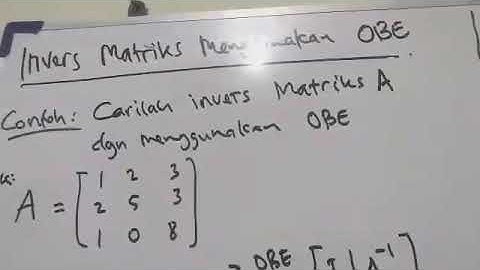 Invers Matriks Menggunakan OBE
Contoh: Carilah invers Matriks A
dgn menggunakan OBE
A = [1 2 3
2 5 3
1 0 8]
= OBE [I | A⁻¹]